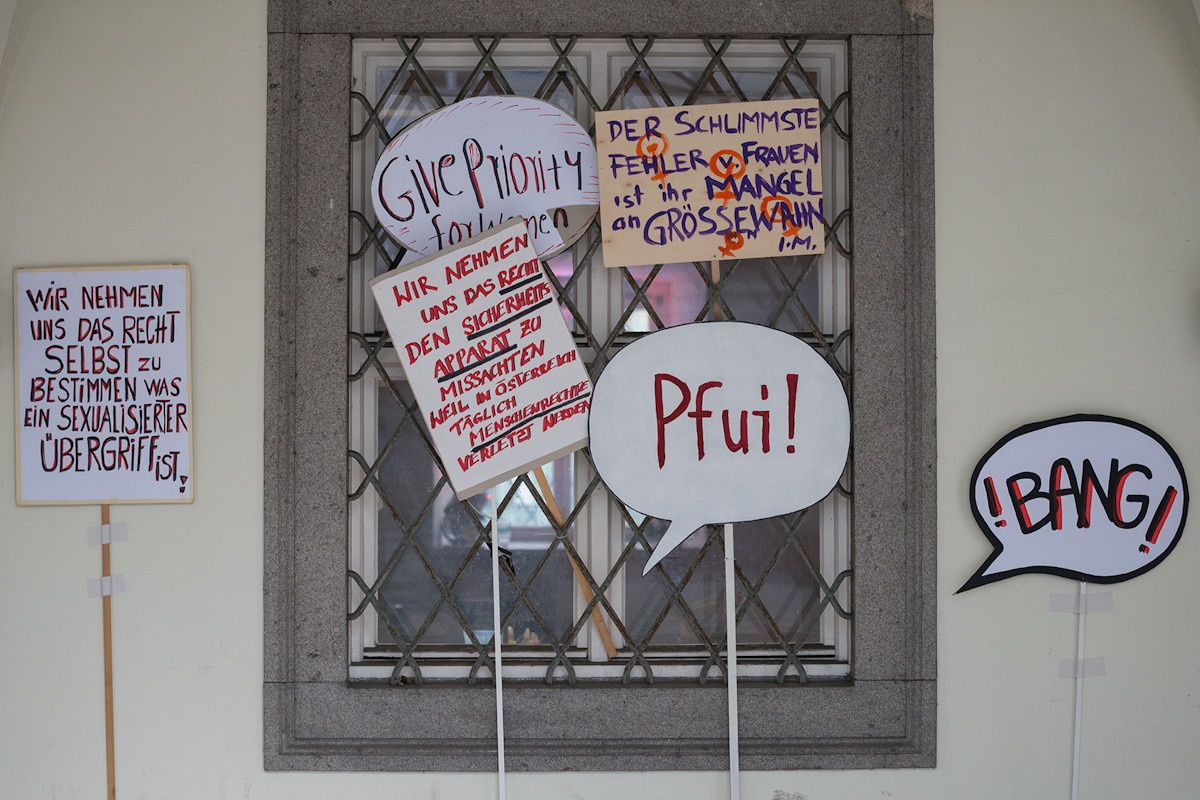 WIR NEHMEN
UNS DAS RECHT
SELBST ZU
BESTIMMEN WAS
EIN SEXUALISIERTER
ÜBERGRIFF IST!
Give Priority
for Women
DER SCHLIMMSTE
FEHLER v. FRAUEN
ist ihr MANGEL
an GRÖSSEWAHN
I.M.
WIR NEHMEN
UNS DAS RECHT
DEN SICHERHEITS
APPARAT ZU
MISSACHTEN
WEIL IN ÖSTERREICH
TÄGLICH
MENSCHENRECHTE
VERLETZT WERDEN
Pfui!
!BANG!